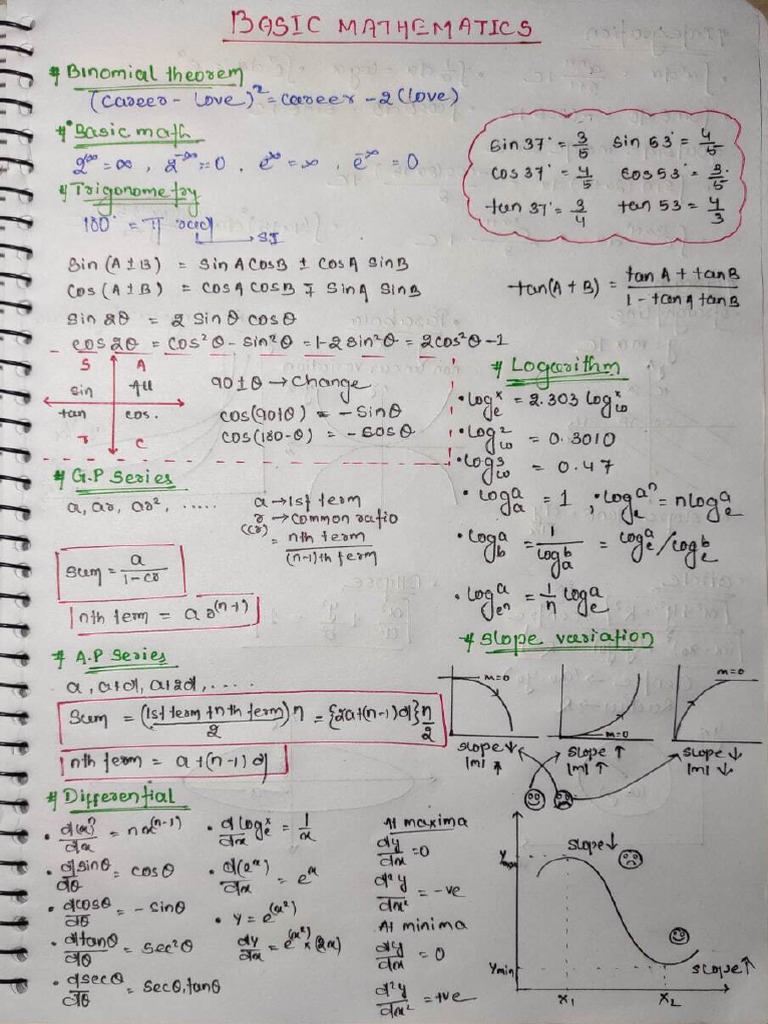 BASIC MATHEMATICS
# Binomial theorem
(career - love)² = career - 2(love)
# Basic math
2^∞ = ∞ , 2^-∞ = 0 , e^∞ = ∞ , e^-∞ = 0
sin 37° = 3/5 sin 53° = 4/5
cos 37° = 4/5 cos 53° = 3/5
tan 37° = 3/4 tan 53 = 4/3
# Trigonometry
180° = π rad
→ SI
Sin (A ± B) = Sin A Cos B ± Cos A Sin B
Cos (A ± B) = Cos A Cos B ∓ Sin A Sin B
tan(A + B) = tan A + tan B / 1 - tan A tan B
Sin 2θ = 2 Sin θ cos θ
cos 2θ = cos²θ - sin²θ = 1-2 sin²θ = 2cos²θ-1
S A
sin All
tan cos.
T C
90±θ → Change
cos(90+θ) = - Sinθ
cos(180-θ) = - cosθ
# Logarithm
• log_e^x = 2.303 log_10^x
• log_10^2 = 0.3010
• log_10^3 = 0.47
• log_a^a = 1 ; • log_e^(a^n) = n log_e^a
• log_b^a = 1/log_a^b = log_e^a / log_e^b
• log_(e^n)^a = 1/n log_e^a
# G.P Series
a, ar, ar², .....
a → 1st term
r → common ratio
(cr) = nth term / (n-1)th term
Sum = a / 1-cr
nth term = a r^(n-1)
# A.P Series
a, a+d, a+2d, .....
Sum = (1st term + nth term)n / 2 = {2a+(n-1)d} n/2
nth term = a + (n-1)d
# Slope variation
m=0 m=0 m=0
slope ↓ slope ↑ slope ↓
|m| ↑ |m| ↑ |m| ↓
# Differential
• d(x)^n/dx = n x^(n-1)
• d sinθ/dθ = cosθ
• d cosθ/dθ = - sinθ
• d tanθ/dθ = sec²θ
• d secθ/dθ = secθ.tanθ
• d log_e^x/dx = 1/x
• d(e^x)/dx = e^x
• y = e^(x²)
dy/dx = e^(x²) × (2x)
At maxima
dy/dx = 0
d²y/dx² = -ve
At minima
dy/dx = 0
d²y/dx² = +ve
Ymax
slope ↓
Ymin
slope ↑
X₁ X₂